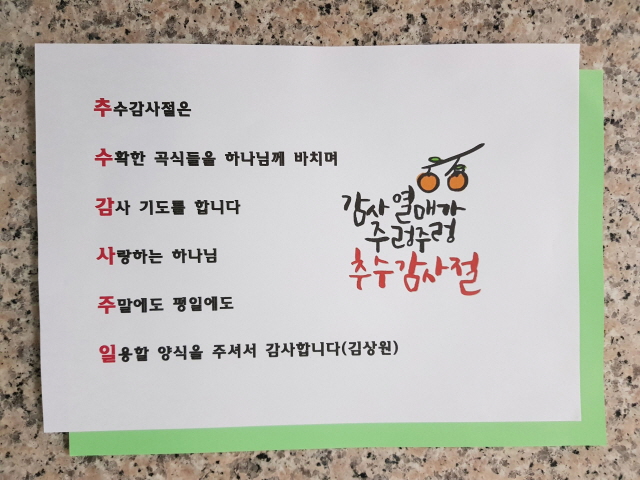 추수감사절은
수확한 곡식들을 하나님께 바치며
감사 기도를 합니다
사랑하는 하나님
주말에도 평일에도
일용할 양식을 주셔서 감사합니다(김상원)
감사열매가
주렁주렁
추수감사절